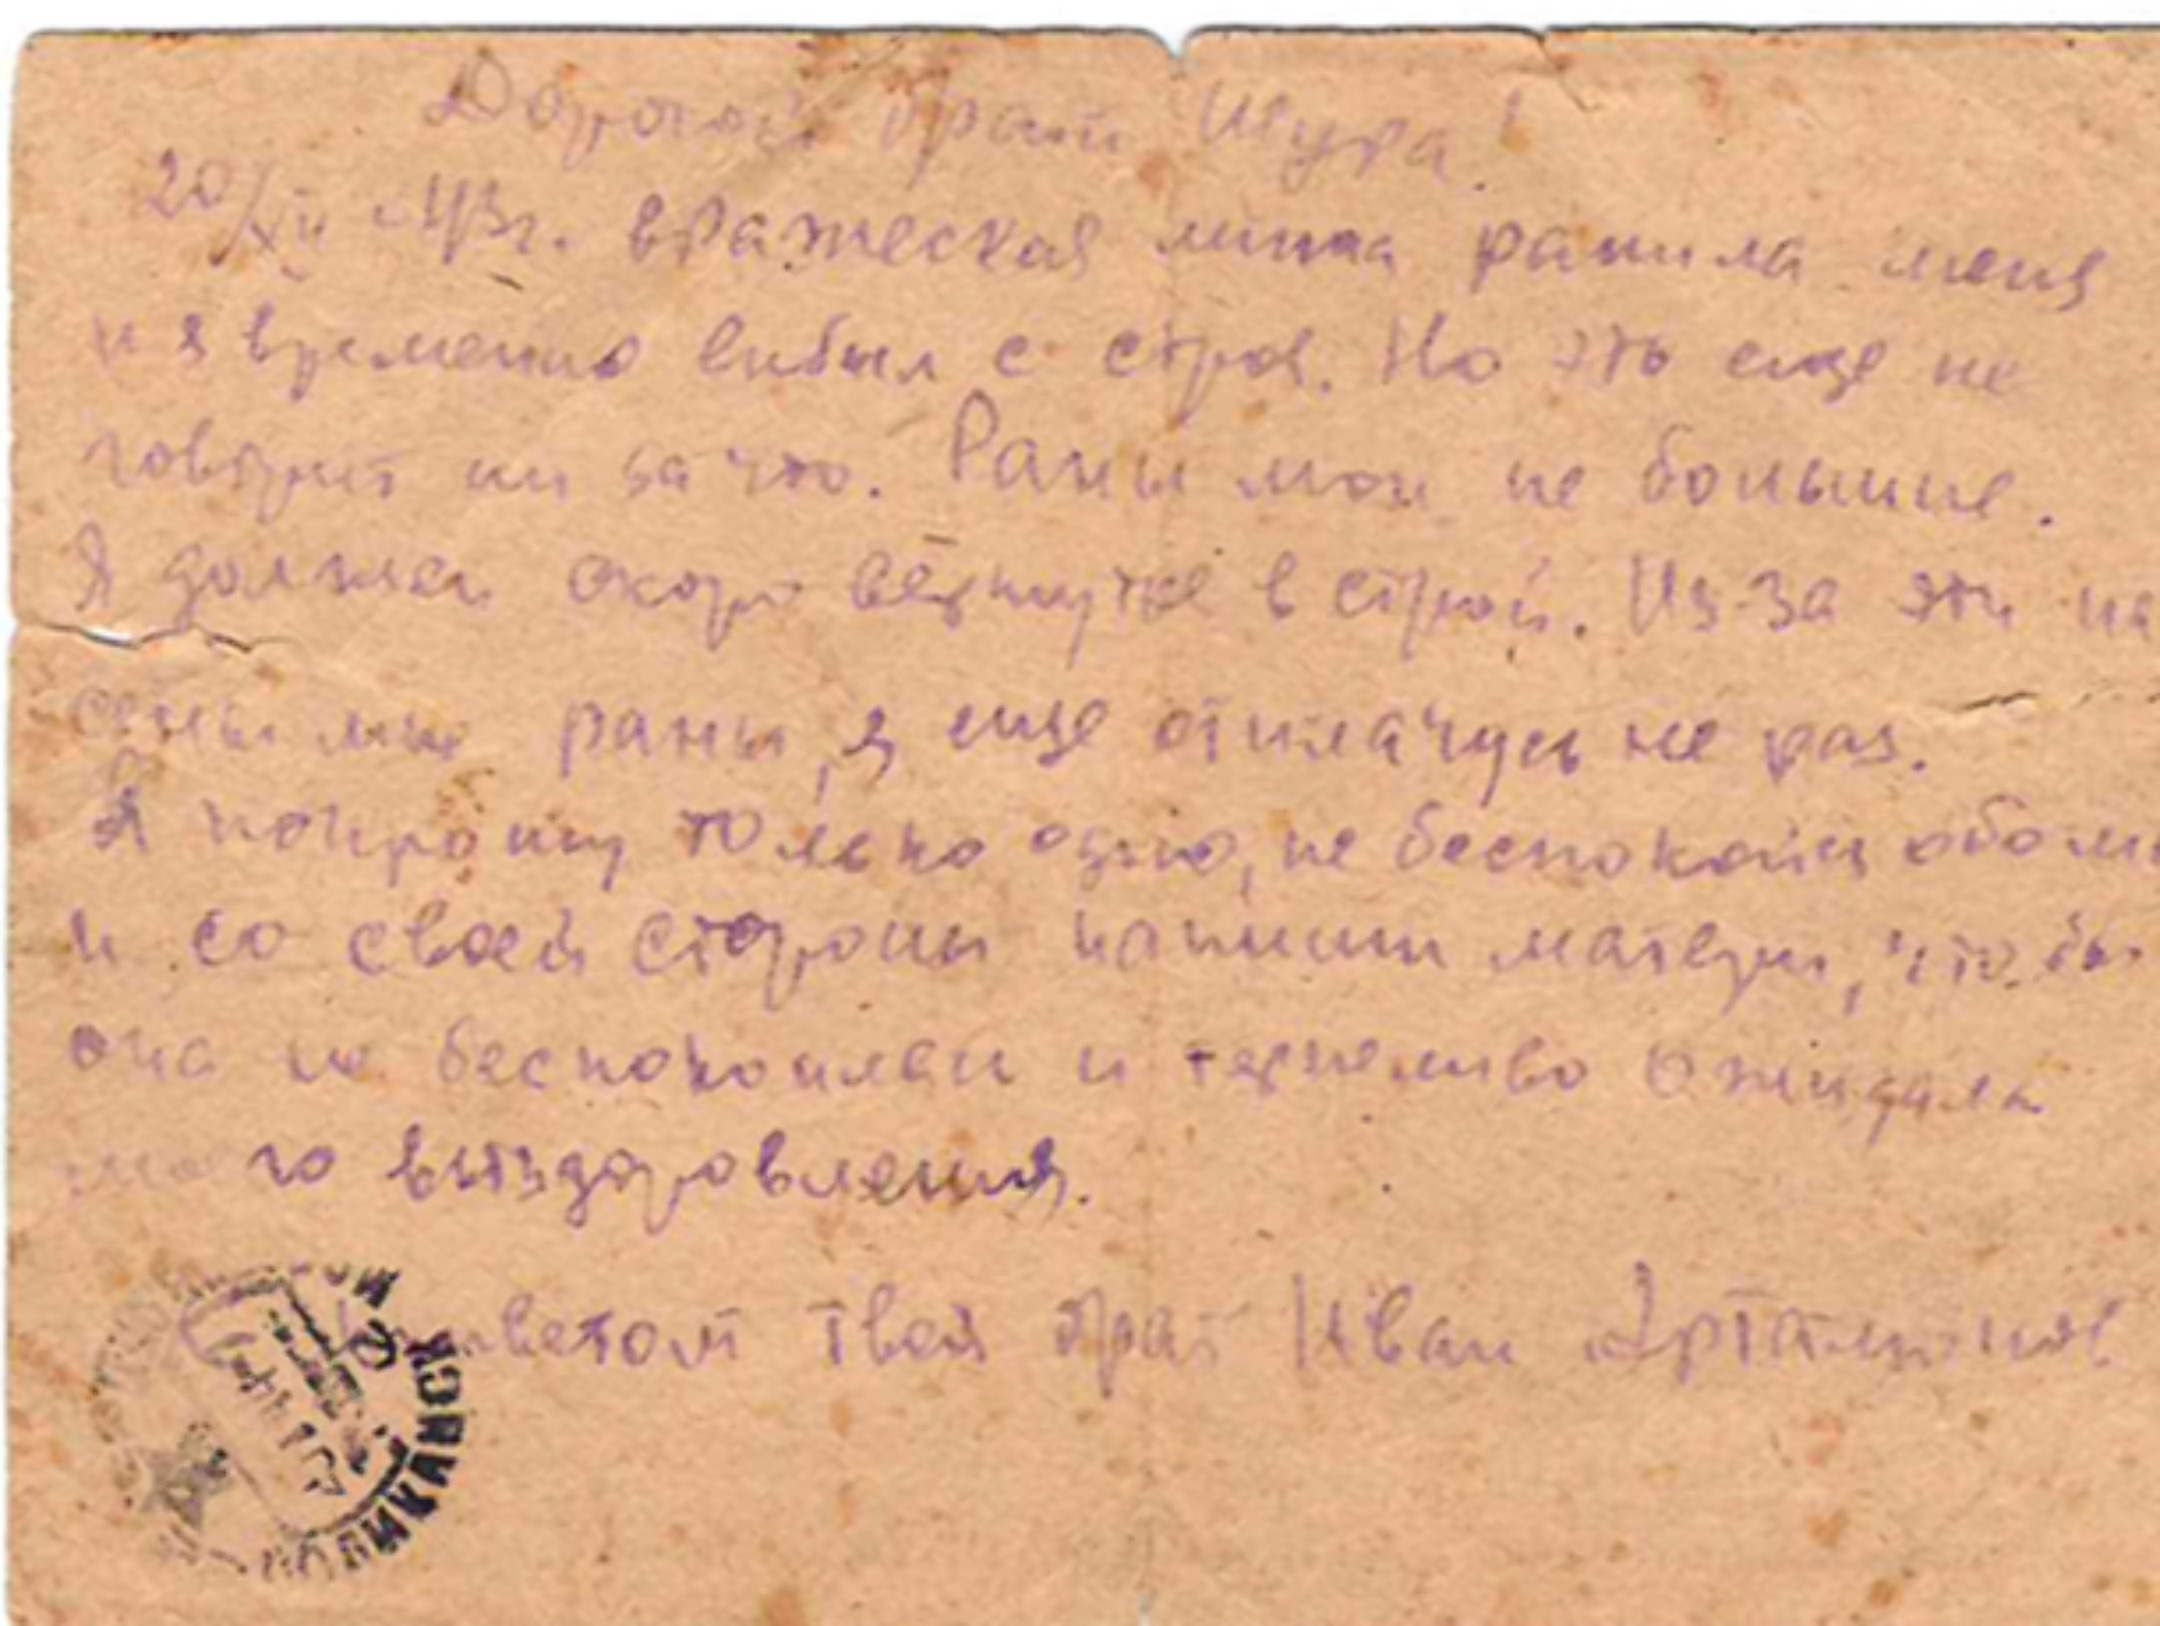 Дорогой брат Шура!
20/XII-43г. вражеская мина ранила меня
и я временно выбыл с строя. Но это еще не
говорит ни за что. Раны мои не большие.
Я должен скоро вернутся в строй. Из-за эти на
сены мне раны, я еще отплачусь не раз.
Я попрошу только одно, не беспокойся обо мн
и со своей стороны напиши матери, что бы
она не беспокоилась и терпеливо ожидала
моего выздоровления.
С приветом твой брат Иван Артамонов